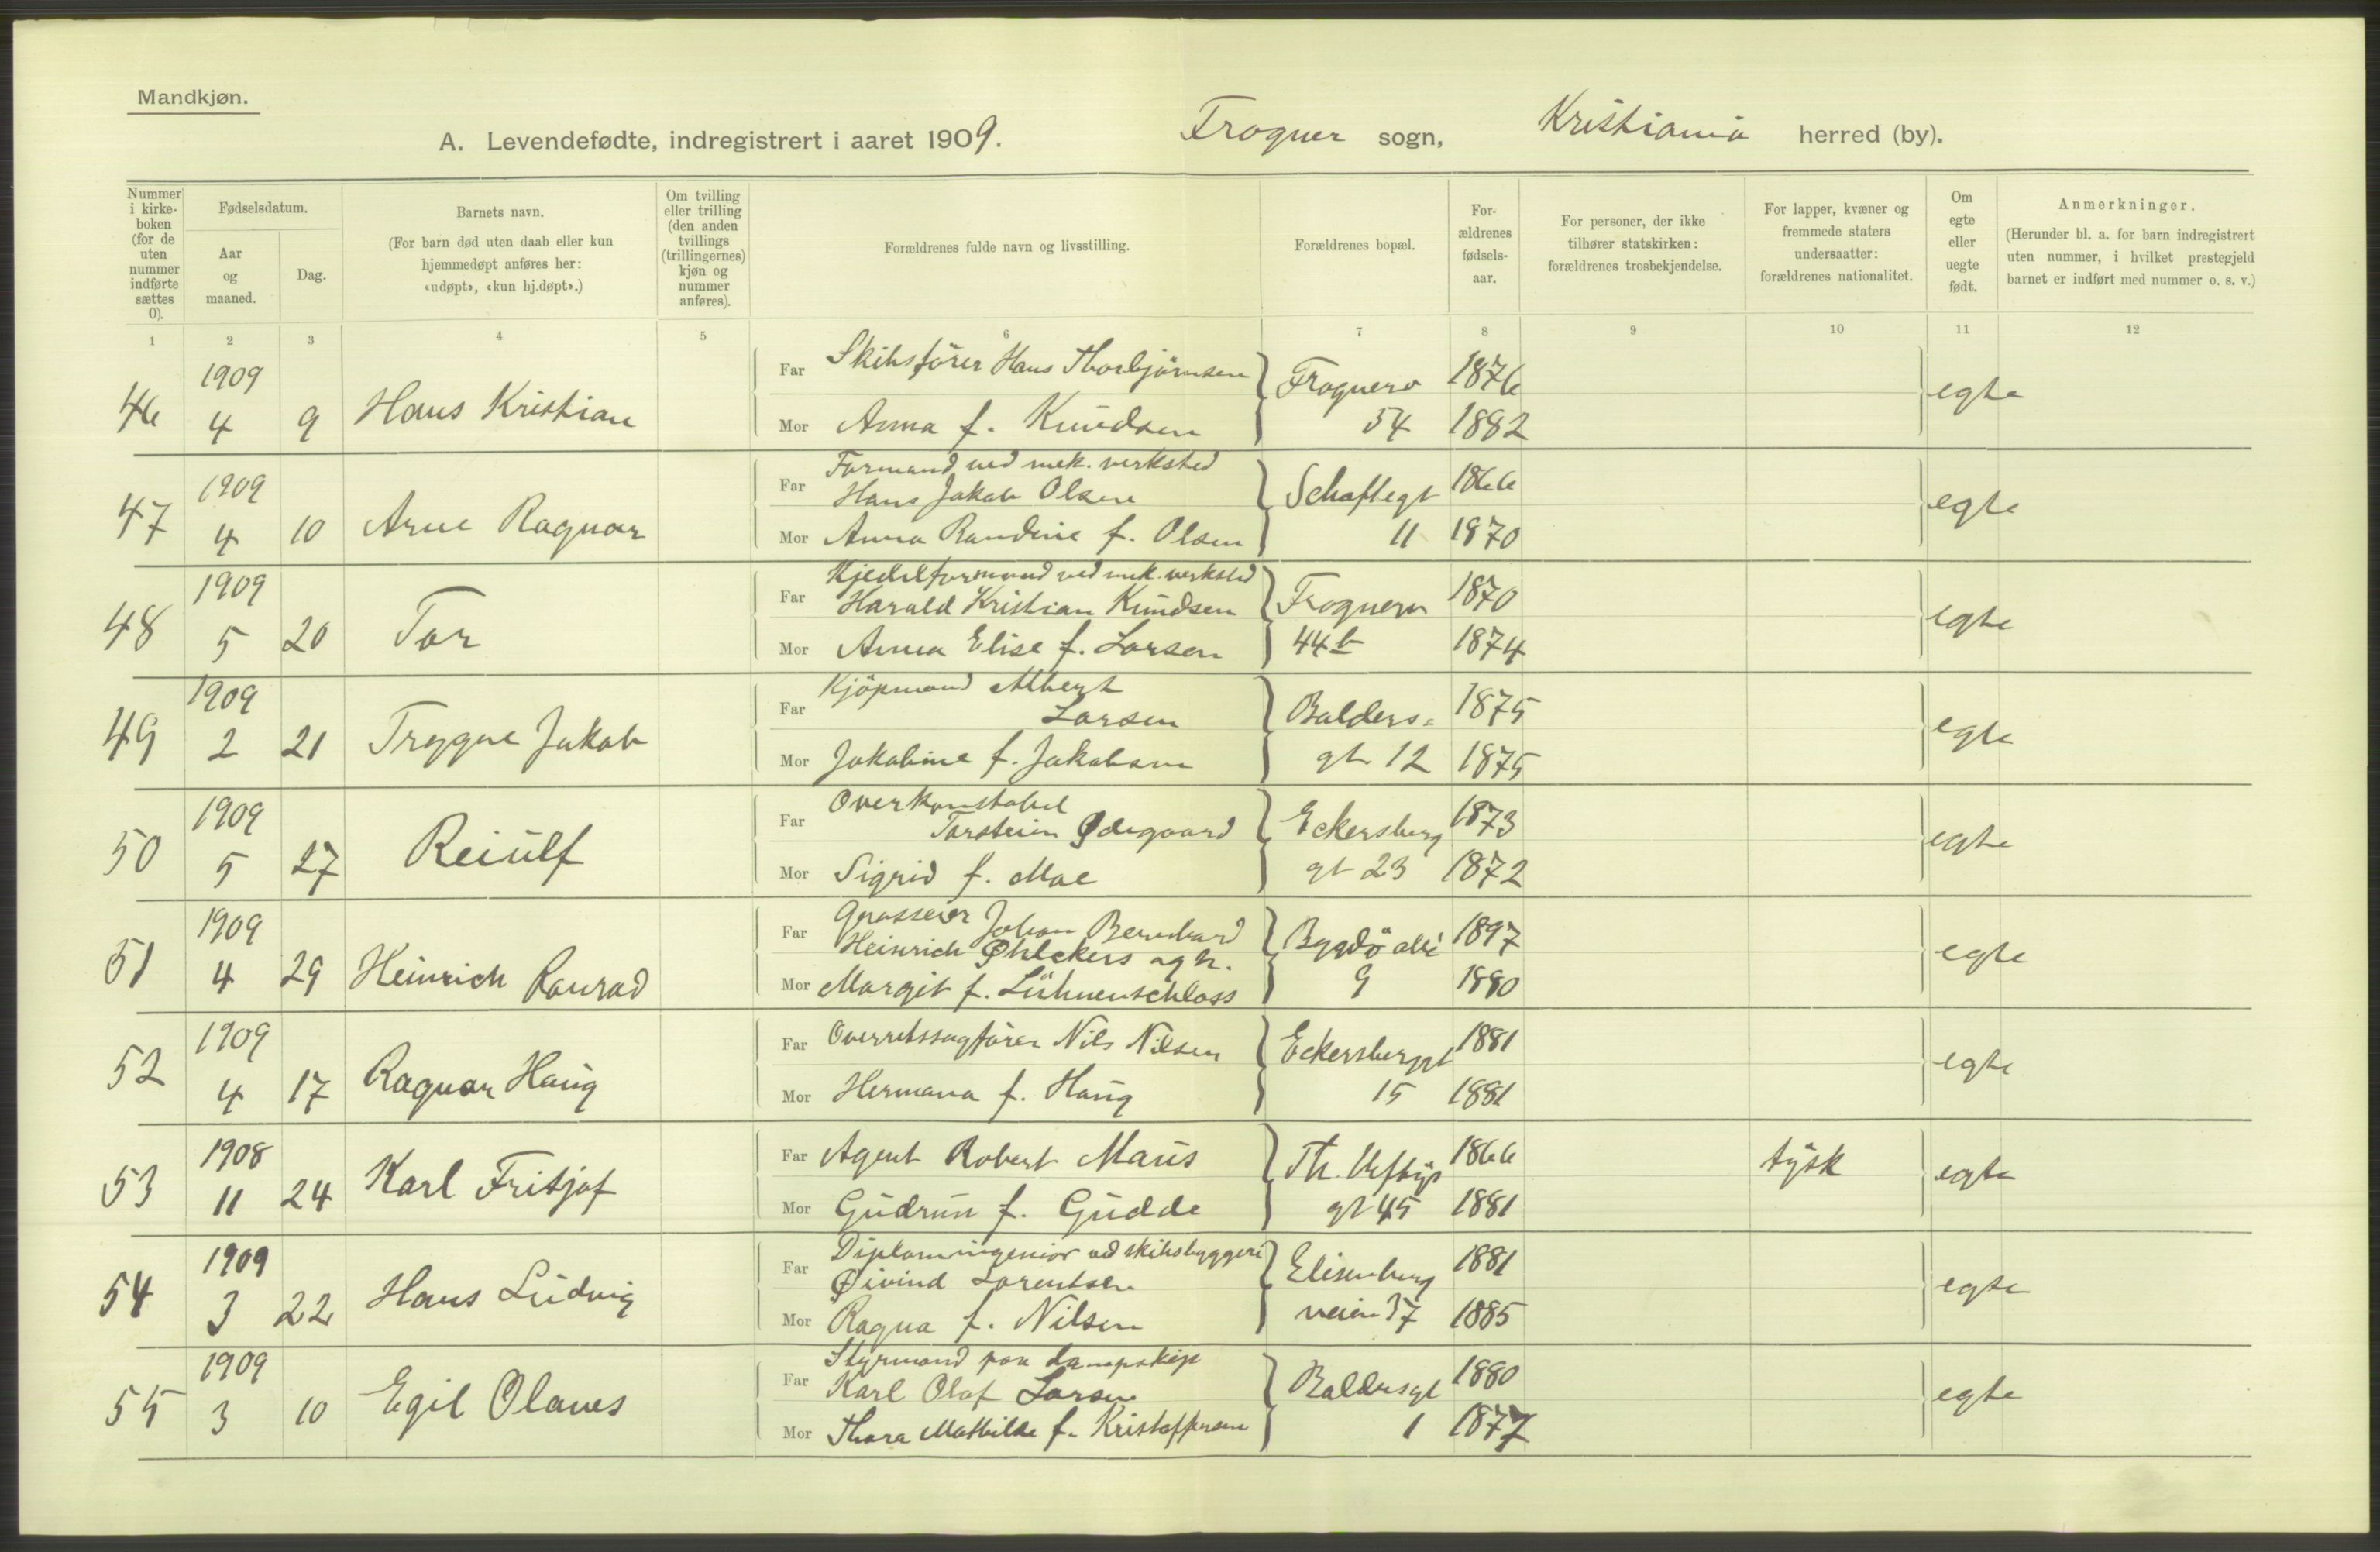 Mandkjøn.
A. Levendefødte, indregistrert i aaret 1909. Frogner sogn, Kristiania herred (by).
Nummer i kirkeboken (for de uten nummer indførte sættes 0).
Fødselsdatum.
Aar og maaned.
Dag.
Barnets navn.
(For barn død uten daab eller kun hjemmedøpt anføres her: «udøpt», «kun hj.døpt».)
Om tvilling eller trilling (den anden tvillings (trillingernes) kjøn og nummer anføres).
Forældrenes fulde navn og livsstilling.
Forældrenes bopæl.
For-ældrenes fødsels-aar.
For personer, der ikke tilhører statskirken: forældrenes trosbekjendelse.
For lapper, kvæner og fremmede staters undersaatter: forældrenes nationalitet.
Om egte eller uegte født.
Anmerkninger.
(Herunder bl. a. for barn indregistrert uten nummer, i hvilket prestegjeld barnet er indført med nummer o. s. v.)
1 2 3 4 5 6 7 8 9 10 11 12
46 1909 4 9 Hans Kristian
Far Skibsfører Hans Thorbjørnsen Frognerv 1876 egte
Mor Anna f. Knudsen 54 1882
47 1909 4 10 Arne Ragnar
Far Formand ved mek. verksted
Hans Jakob Olsen Schaftegt 1866 egte
Mor Anna Randine f. Olsen 11 1870
48 1909 5 20 Tor
Far Kjedelformand ved mek. verksted
Harald Kristian Knudsen Frognerv 1870 egte
Mor Anna Elise f. Larsen 44b 1874
49 1909 2 21 Trygve Jakob
Far Kjöpmand Albert
Larsen Balders- 1875 egte
Mor Jakobine f. Jakobsen gt 12 1875
50 1909 5 27 Reiulf
Far Overkonstabel
Torstein Ødegaard Eckersberg 1873 egte
Mor Sigrid f. Moe gt 23 1872
51 1909 4 29 Heinrich Konrad
Far Grosserer Johan Bernhard
Heinrich Øhlckers og h. Bygdö allé 1897 egte
Mor Margit f. Lühnenschloss 9 1880
52 1909 4 17 Ragnar Haug
Far Overretssagfører Nils Nilsen Eckersberggt 1881 egte
Mor Hermana f. Haug 15 1881
53 1908 11 24 Karl Fritjof
Far Agent Robert Maus Th. Heftys 1866 tysk egte
Mor Gudrun f. Gudde gt 45 1881
54 1909 3 22 Hans Ludvig
Far Diplomingeniør ved skibsbyggeri
Øivind Lorentsen Elisenberg 1881 egte
Mor Ragna f. Nilsen veien 37 1885
55 1909 3 10 Egil Olaves
Far Styrmand paa dampskip
Karl Olaf Larsen Baldersgt 1880 egte
Mor Thora Mathilde f. Kristoffersen 1 1877